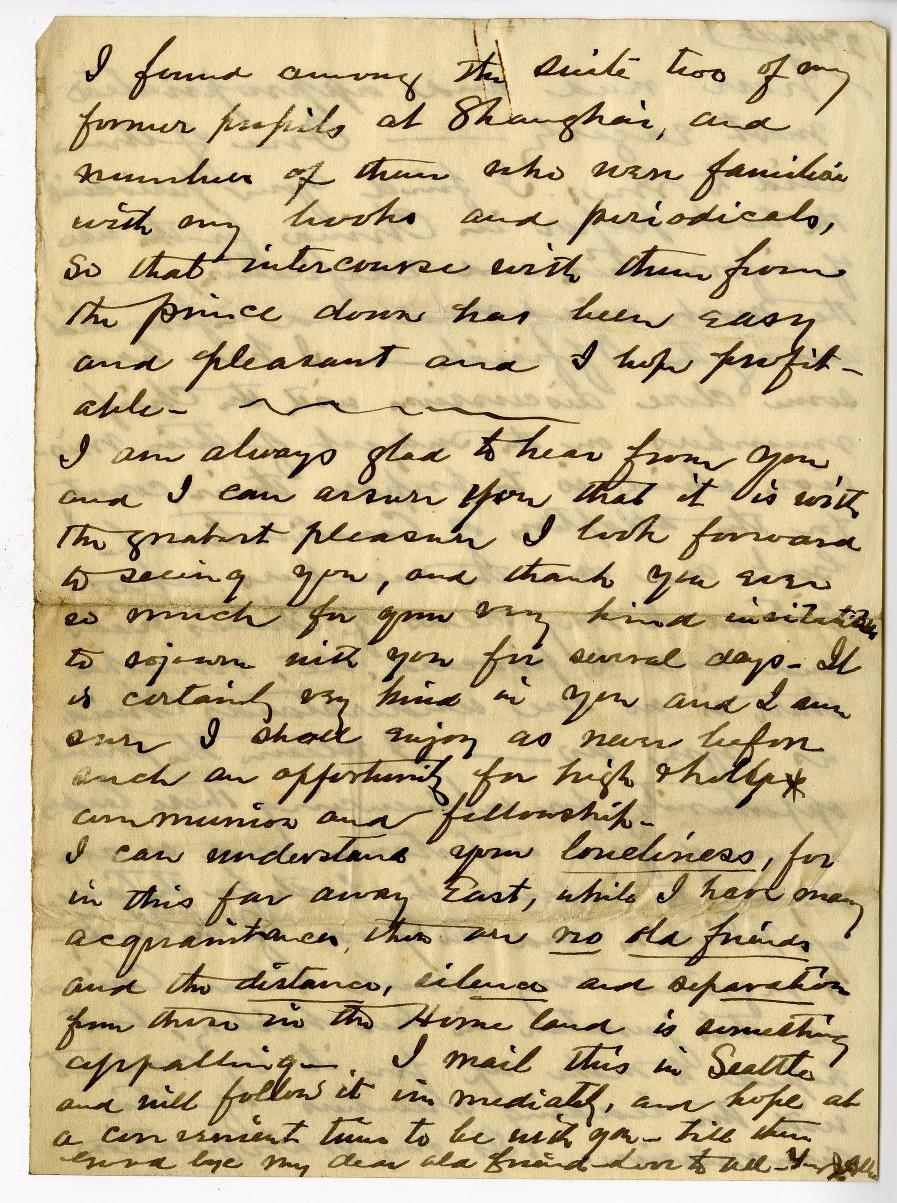 I found among the suite two of my
former pupils at Shanghai, and
number of them who were familiar
with my books and periodicals,
so that intercourse with them from
the prince down has been easy
and pleasant and I hope profit-
able-
I am always glad to hear from you
and I can assure you that it is with
the greatest pleasure I look forward
to seeing you, and thank you ever
so much for your very kind invitation
to sojourn with you for several days- It
is certainly very kind in you and I am
sure I shall enjoy as never before
such an opportunity for high & holy
communion and fellowship-
I can understand your loneliness, for
in this far away East, while I have many
acquaintances, there are no old friends
and the distance, silence and separation
from those in the Home land is something
appalling- I mail this in Seattle
and will follow it immediately, and hope at
a convenient time to be with you- till then
Good bye my dear old friend- love to all-